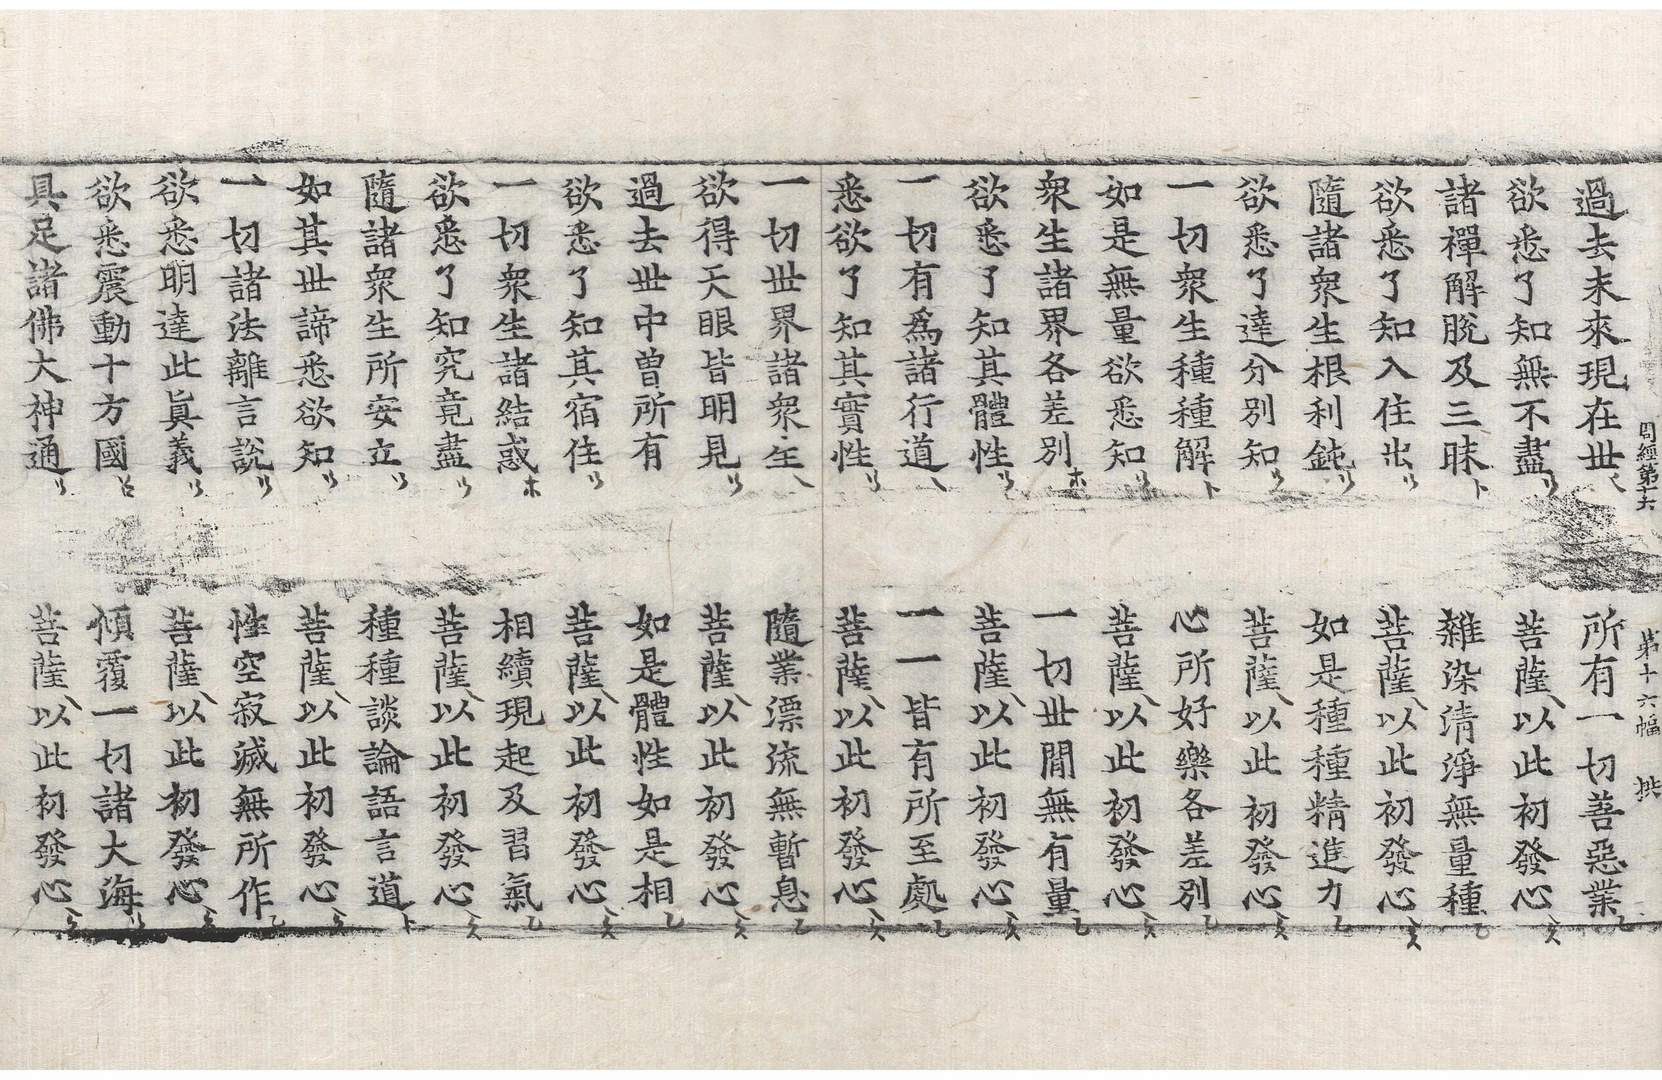 周經第十六 第十六幅 拱
過去未來現在世 所有一切善惡業
欲悉了知無不盡 菩薩以此初發心
諸禪解脫及三昧 雜染清淨無量種
欲悉了知入住出 菩薩以此初發心
隨諸衆生根利鈍 如是種種精進力
欲悉了達分別知 菩薩以此初發心
一切衆生種種解 心所好樂各差別
如是無量欲悉知 菩薩以此初發心
衆生諸界各差別 一切世閒無有量
欲悉了知其體性 菩薩以此初發心
一切有爲諸行道 一一皆有所至處
悉欲了知其實性 菩薩以此初發心
一切世界諸衆生 隨業漂流無暫息
欲得天眼皆明見 菩薩以此初發心
過去世中曾所有 如是體性如是相
欲悉了知其宿住 菩薩以此初發心
一切衆生諸結惑 相續現起及習氣
欲悉了知究竟盡 菩薩以此初發心
隨諸衆生所安立 種種談論語言道
如其世諦悉欲知 菩薩以此初發心
一切諸法離言說 性空寂滅無所作
欲悉明達此眞義 菩薩以此初發心
欲悉震動十方國 傾覆一切諸大海
具足諸佛大神通 菩薩以此初發心